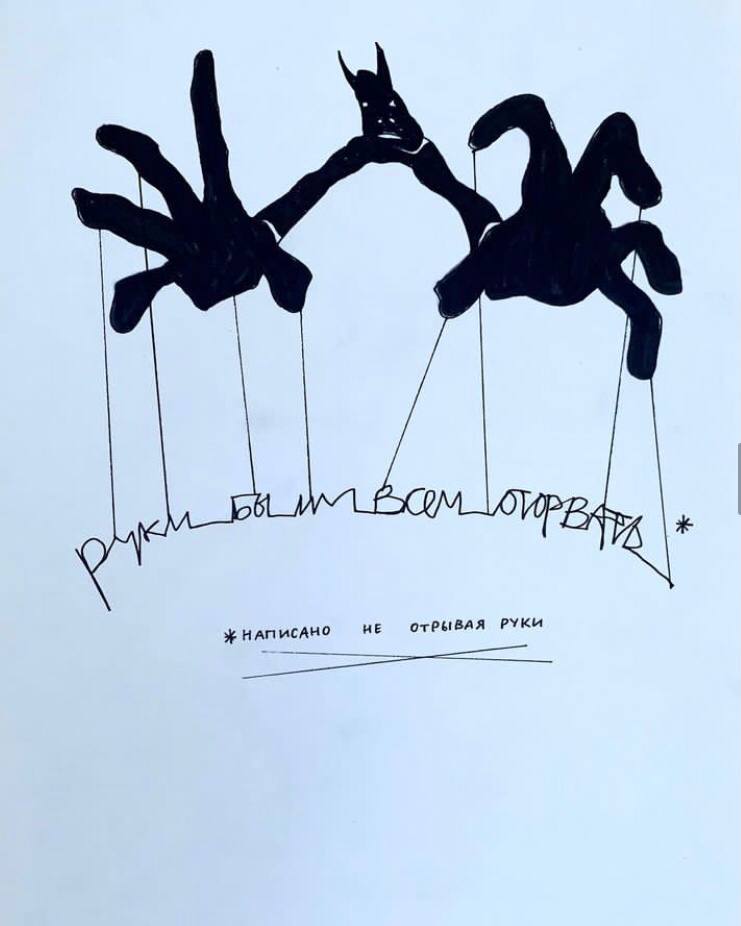 руки бы им всем оторвать *
*написано не отрывая руки